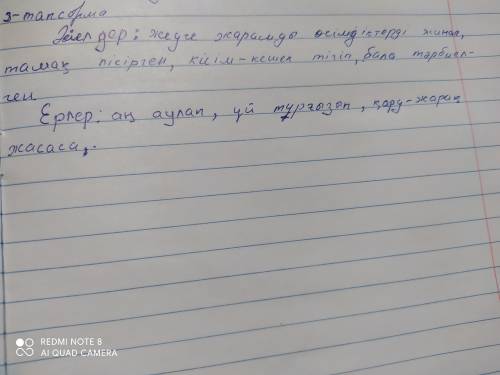 3-тапсорма
Әйелдер: жеуге жарамды өсімдістерді жинап,
тамақ пісірген, киім-кешек тігіп, бала тәрбиел-
ген
Ерлер: аң аулап, үй тұрғызып, қару-жарақ
жасаса,.
REDMI NOTE 8
AI QUAD CAMERA